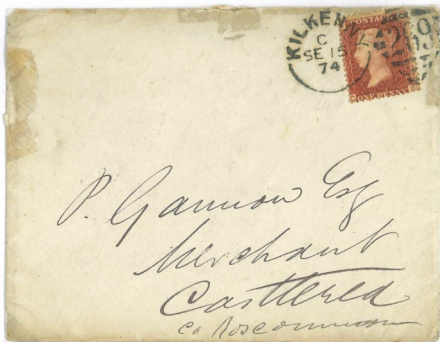 KILKENNY
C
SE 15
74
POSTAGE
ONE PENNY
P. Gannon Esq
Merchant
Castlerea
Co Roscommon